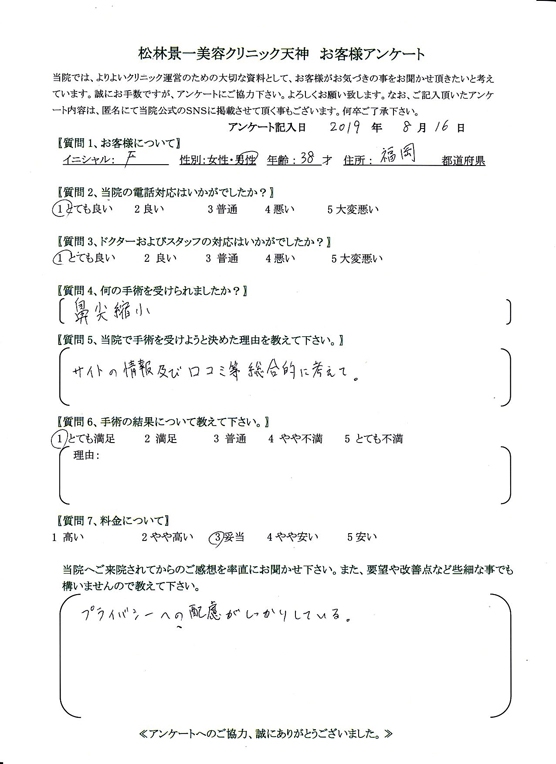 松林景一美容クリニック天神 お客様アンケート
当院では、よりよいクリニック運営のための大切な資料として、お客様がお気づきの事をお聞かせ頂きたいと考え
ています。誠にお手数ですが、アンケートにご協力下さい。よろしくお願い致します。なお、ご記入頂いたアンケ
ート内容は、匿名にて当院公式のSNSに掲載させて頂く事もございます。何卒ご了承下さい。
アンケート記入日 2019 年 8 月 16 日
〖質問1、お客様について〗
イニシャル: F 性別:女性・男性 年齢:38 才 住所: 福岡 都道府県
〖質問2、当院の電話対応はいかがでしたか?〗
1とても良い 2 良い 3 普通 4 悪い 5 大変悪い
〖質問3、ドクターおよびスタッフの対応はいかがでしたか?〗
1とても良い 2 良い 3 普通 4 悪い 5 大変悪い
〖質問4、何の手術を受けられましたか?〗
鼻尖縮小
〖質問5、当院で手術を受けようと決めた理由を教えて下さい。〗
サイトの情報及び口コミ等総合的に考えて。
〖質問6、手術の結果について教えて下さい。〗
1とても満足 2 満足 3 普通 4 やや不満 5 とても不満
理由:
〖質問7、料金について〗
1 高い 2 やや高い 3 妥当 4 やや安い 5 安い
当院へご来院されてからのご感想を率直にお聞かせ下さい。また、要望や改善点など些細な事でも
構いませんので教えて下さい。
プライバシーへの配慮がしっかりしている。
≪アンケートへのご協力、誠にありがとうございました。≫